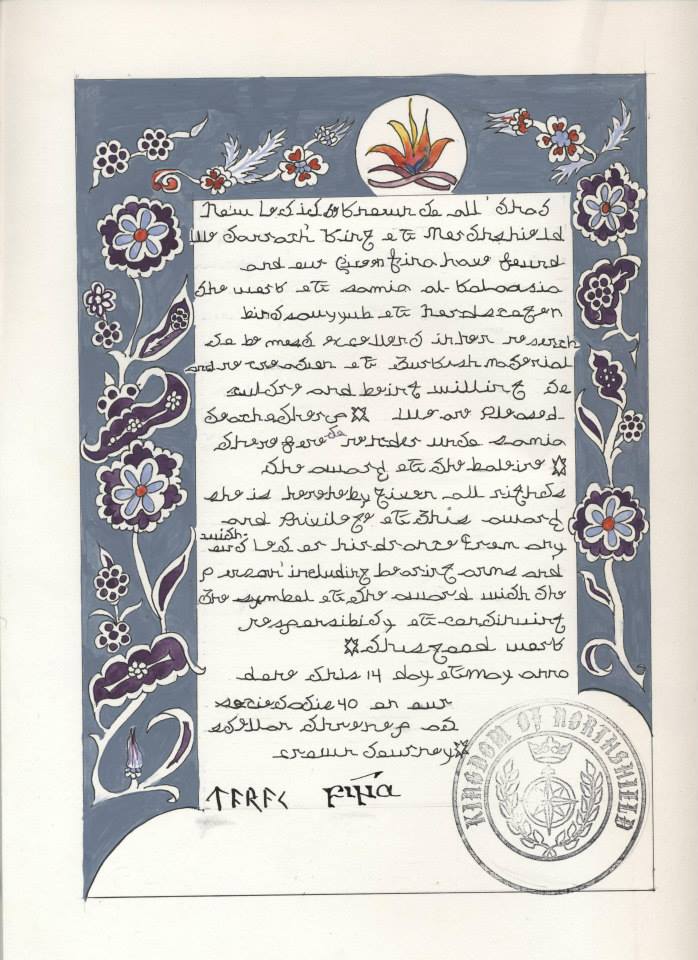 Now Let it be Known to all that
We King of Northshield
and our Queen Fina have found
the work of Samia al-
bint of Nordskogen
to be most excellent in her research
and recreation of Turkish Material
culture and being willing to
teach others ✡ We are Pleased
therefore to render unto Samia
the award of the ✡
she is hereby given all rights
and Privilege of this award
with out Let or hindrance from any
person including bearing arms and
the symbol of the award with the
responsibility of continuing
✡ this good work
done this 14 day of May anno
societatis 40 on our
stellar at
crown tourney ✡
fina
KINGDOM OF NORTHSHIELD